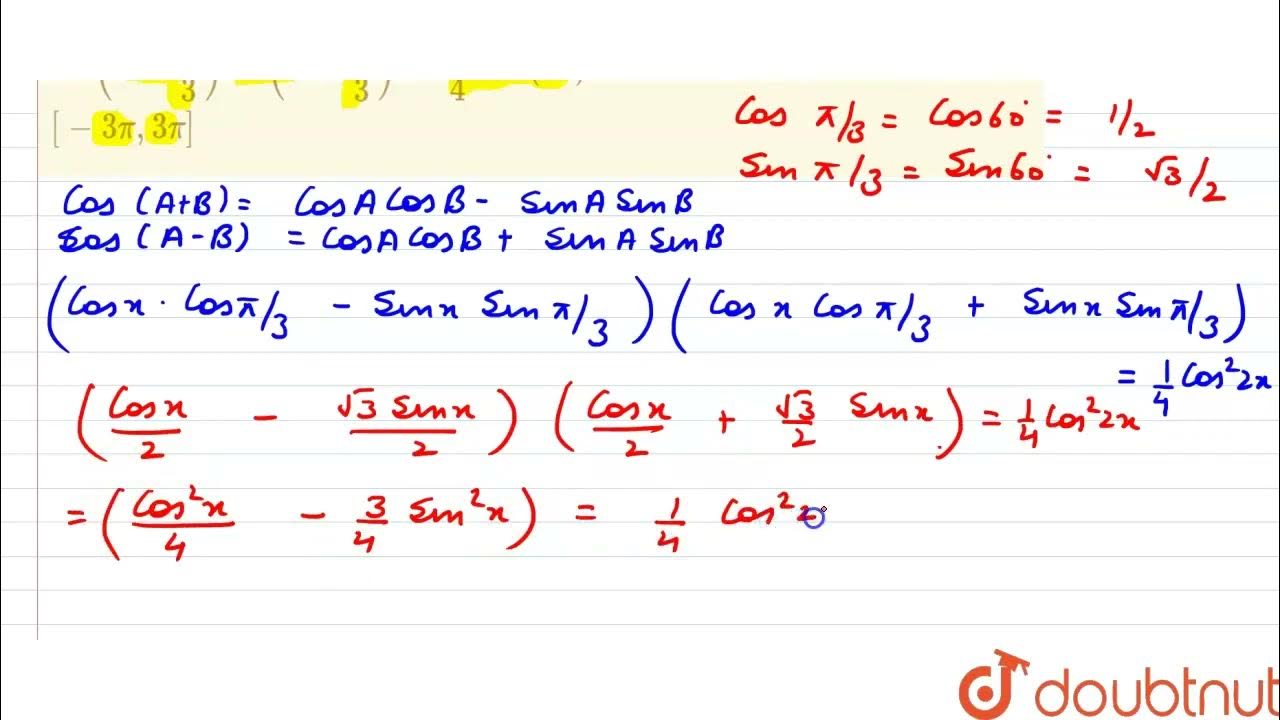 3 3 4
[ − 3π, 3π]
Cos π/3 = Cos60° = 1/2
Sin π/3 = Sin60° = √3/2
Cos (A+B) = CosA CosB - SinA SinB
Cos (A-B) = CosA CosB + SinA SinB
(Cosx · Cosπ/3 - Sinx Sin π/3) (Cos x Cos π/3 + Sinx Sin π/3)
= 1/4 Cos²2x
(Cosx/2 - √3 Sinx/2) (Cosx/2 + √3/2 Sinx) = 1/4 Cos²2x
= (Cos²x/4 - 3/4 Sin²x) = 1/4 Cos²2
doubtnut